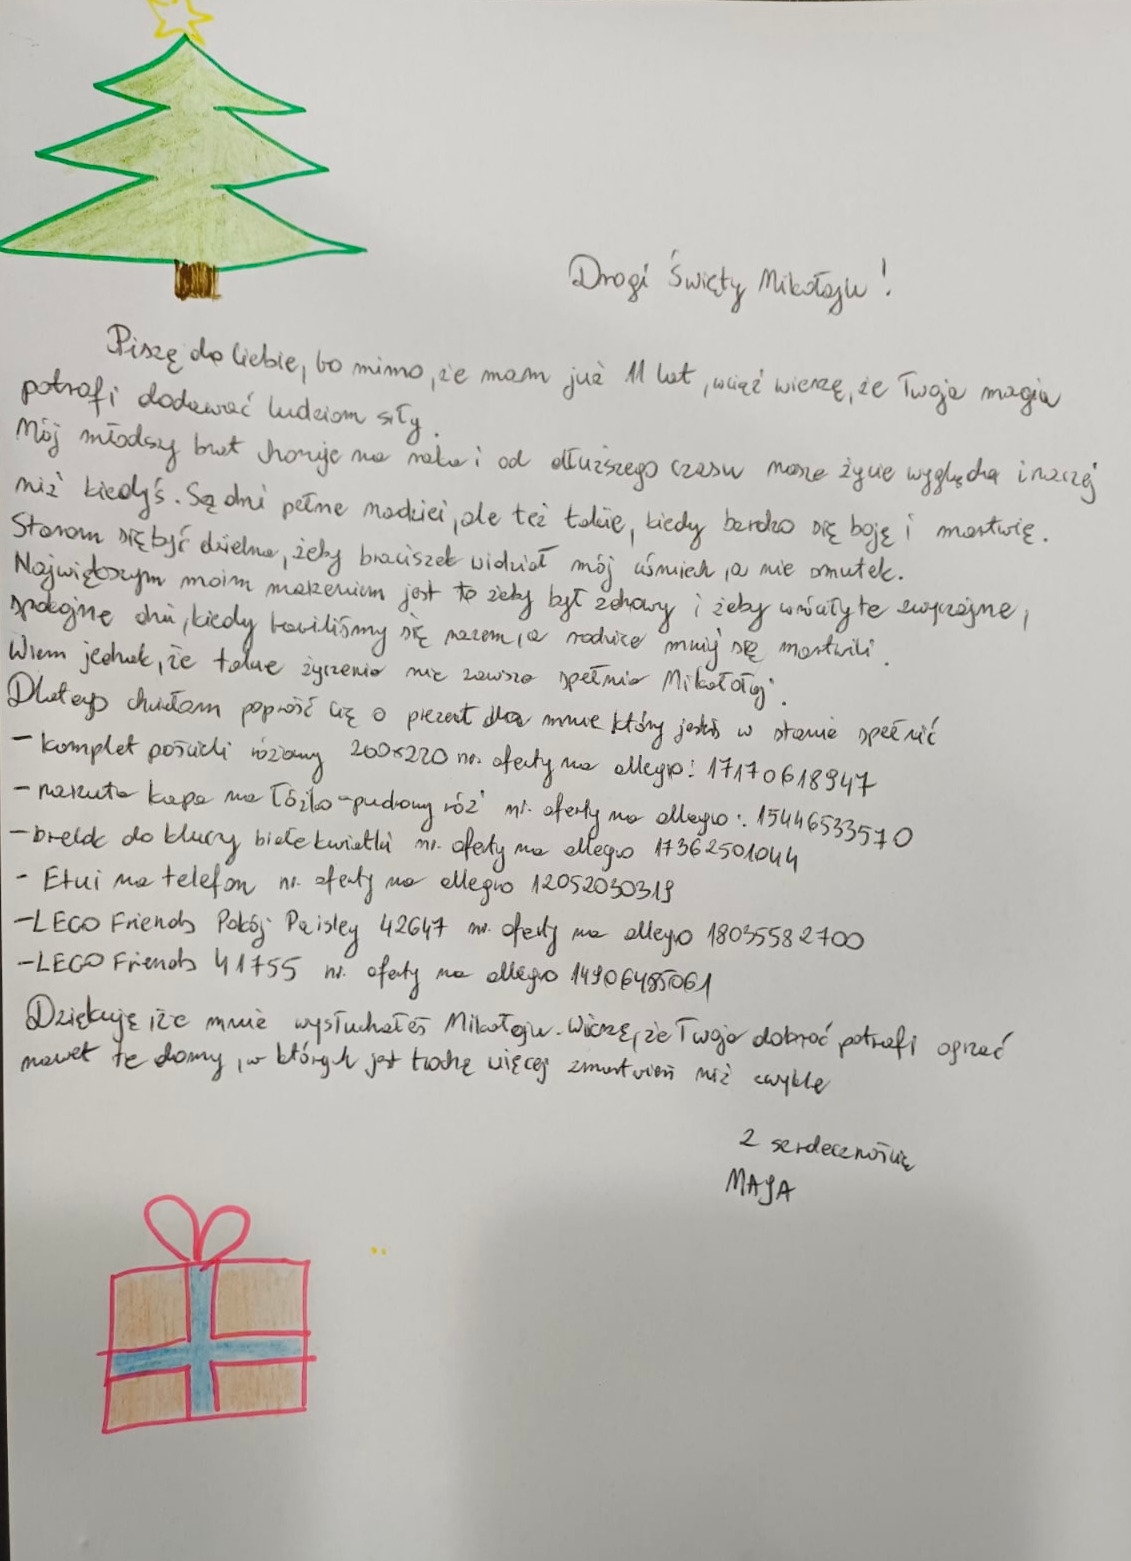 Drogi Święty Mikołaju!
Piszę do Ciebie, bo mimo, że mam już 11 lat, wciąż wierzę, że Twoja magia
potrafi dodawać ludziom siły.
Mój młodszy brat choruje na raka i od dłuższego czasu nasze życie wygląda inaczej
niż kiedyś. Są dni pełne nadziei, ale też takie, kiedy bardzo się boję i martwię.
Staram się być dzielna, żeby braciszek widział mój uśmiech, a nie smutek.
Największym moim marzeniem jest to żeby był zdrowy i żeby wróciły te zwyczajne,
spokojne dni, kiedy bawiliśmy się razem, a rodzice mniej się martwili.
Wiem jednak, że takie życzenia nie zawsze spełnia Mikołaj.
Dlatego chciałam poprosić Cię o prezent dla mnie który jesteś w stanie spełnić
- komplet pościeli różowy 200x220 nr. oferty na allegro: 17170618947
- narzuta kapa na łóżko - pudrowy róż nr. oferty na allegro: 15446533570
- brelok do kluczy białe kwiatki nr. oferty na allegro 17362501044
- Etui na telefon nr. oferty na allegro 12052030319
- LEGO Friends Pokój Paisley 42647 nr. oferty na allegro 18035582700
- LEGO Friends 41755 nr. oferty na allegro 14906485061
Dziękuję że mnie wysłuchałeś Mikołaju. Wierzę, że Twoja dobroć potrafi ogrzać
nawet te domy, w których jest trochę więcej zmartwień niż zwykle
Z serdecznością
MAJA